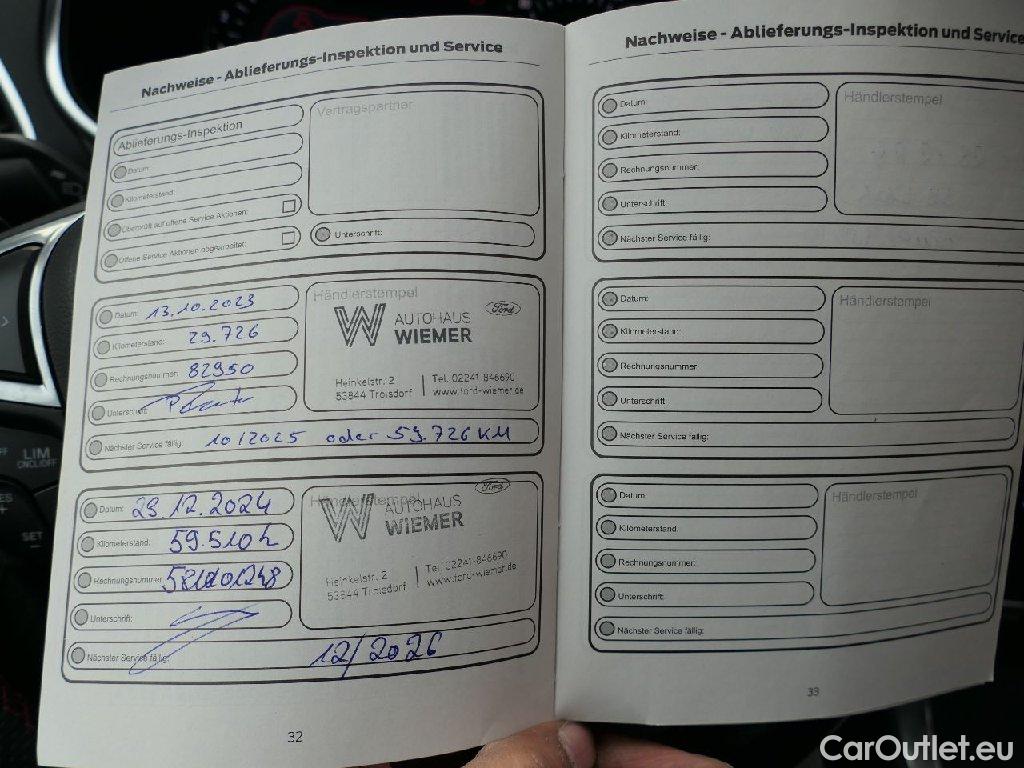 Nachweise - Ablieferungs-Inspektion und Service
Ablieferungs-Inspektion
Datum:
Kilometerstand:
Überprüft auf offene Service Aktionen:
Offene Service Aktionen abgearbeitet:
Vertragspartner
Unterschrift:
Datum: 13.10.2023
Kilometerstand: 29.726
Rechnungsnummer: 82950
Unterschrift:
Nächster Service fällig: 10/2025 oder 59.726 KM
Händlerstempel
AUTOHAUS
WIEMER
Ford
Heinkelstr. 2
53844 Troisdorf
Tel. 02241 846690
www.ford-wiemer.de
Datum: 23 12.2024
Kilometerstand: 59.510
Rechnungsnummer:
Unterschrift:
Nächster Service fällig: 12/2026
Händlerstempel
AUTOHAUS
WIEMER
Ford
Heinkelstr. 2
53844 Troisdorf
Tel. 02241 846690
www.ford-wiemer.de
32
Nachweise - Ablieferungs-Inspektion und Service
Datum:
Kilometerstand:
Rechnungsnummer:
Unterschrift:
Nächster Service fällig:
Händlerstempel
Datum:
Kilometerstand:
Rechnungsnummer:
Unterschrift:
Nächster Service fällig:
Händlerstempel
Datum:
Kilometerstand:
Rechnungsnummer:
Unterschrift:
Nächster Service fällig:
Händlerstempel
33
LIM
ON/OFF
SET
CarOutlet.eu